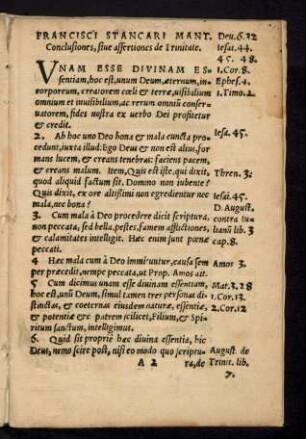 FRANCISCI STANCARI MANT.
Conclusiones, siue assertiones de Trinitate.
VNAM ESSE DIVINAM ES-
sentiam, hoc est, unum Deum, æternum, in-
corporeum, creatorem cœli & terræ, uisibilium
omnium et inuisibilium, ac rerum omniũ conser-
uatorem, fides nostra ex uerbo Dei profitetur
& credit.
2. Ab hoc uno Deo bona & mala cuncta pro-
cedunt, iuxta illud: Ego Deus & non est alius, for
mans lucem, & creans tenebras: faciens pacem,
& creans malum. Item, Quis est iste, qui dixit,
quod aliquid factum sit, Domino non iubente?
Quis dixit, ex ore altissimi non egredientur nec
mala, nec bona?
3. Cum mala à Deo procedere dicit scriptura,
non peccata, sed bella, pestes, famem afflictiones,
& calamitates intelligit. Hæc enim sunt pœnæ
peccati.
4 Hæc mala cum à Deo immittuntur, causa sem
per præcedit, nempe peccata, ut Prop. Amos ait.
5 Cum dicimus unam esse diuinam essentiam,
hoc est, unũ Deum, simul tamen tres personas di-
stinctas, & coæternas eiusdem naturæ, essentiæ,
& potentiæ & patrem scilicet, Filium, & Spi-
ritum sanctum, intelligimus.
6. Quid sit propriè hæc diuina essentia, hic
Deus, nemo scire potst, nisi eo modo quo scriptu-
A 2 ra, de
Deu. 6. 32
Iesai. 44.
45. 48.
1. Cor. 8.
Ephes. 4.
1. Timo. 2.
Iesai. 45.
Thren. 3:
Iesai. 45.
D. August.
contra Iu-
lianũ lib. 3
cap. 8.
Amos 3.
Mat. 3. 28
1. Cor. 13.
2. Cor. 12
August. de
Trinit. lib.
7.